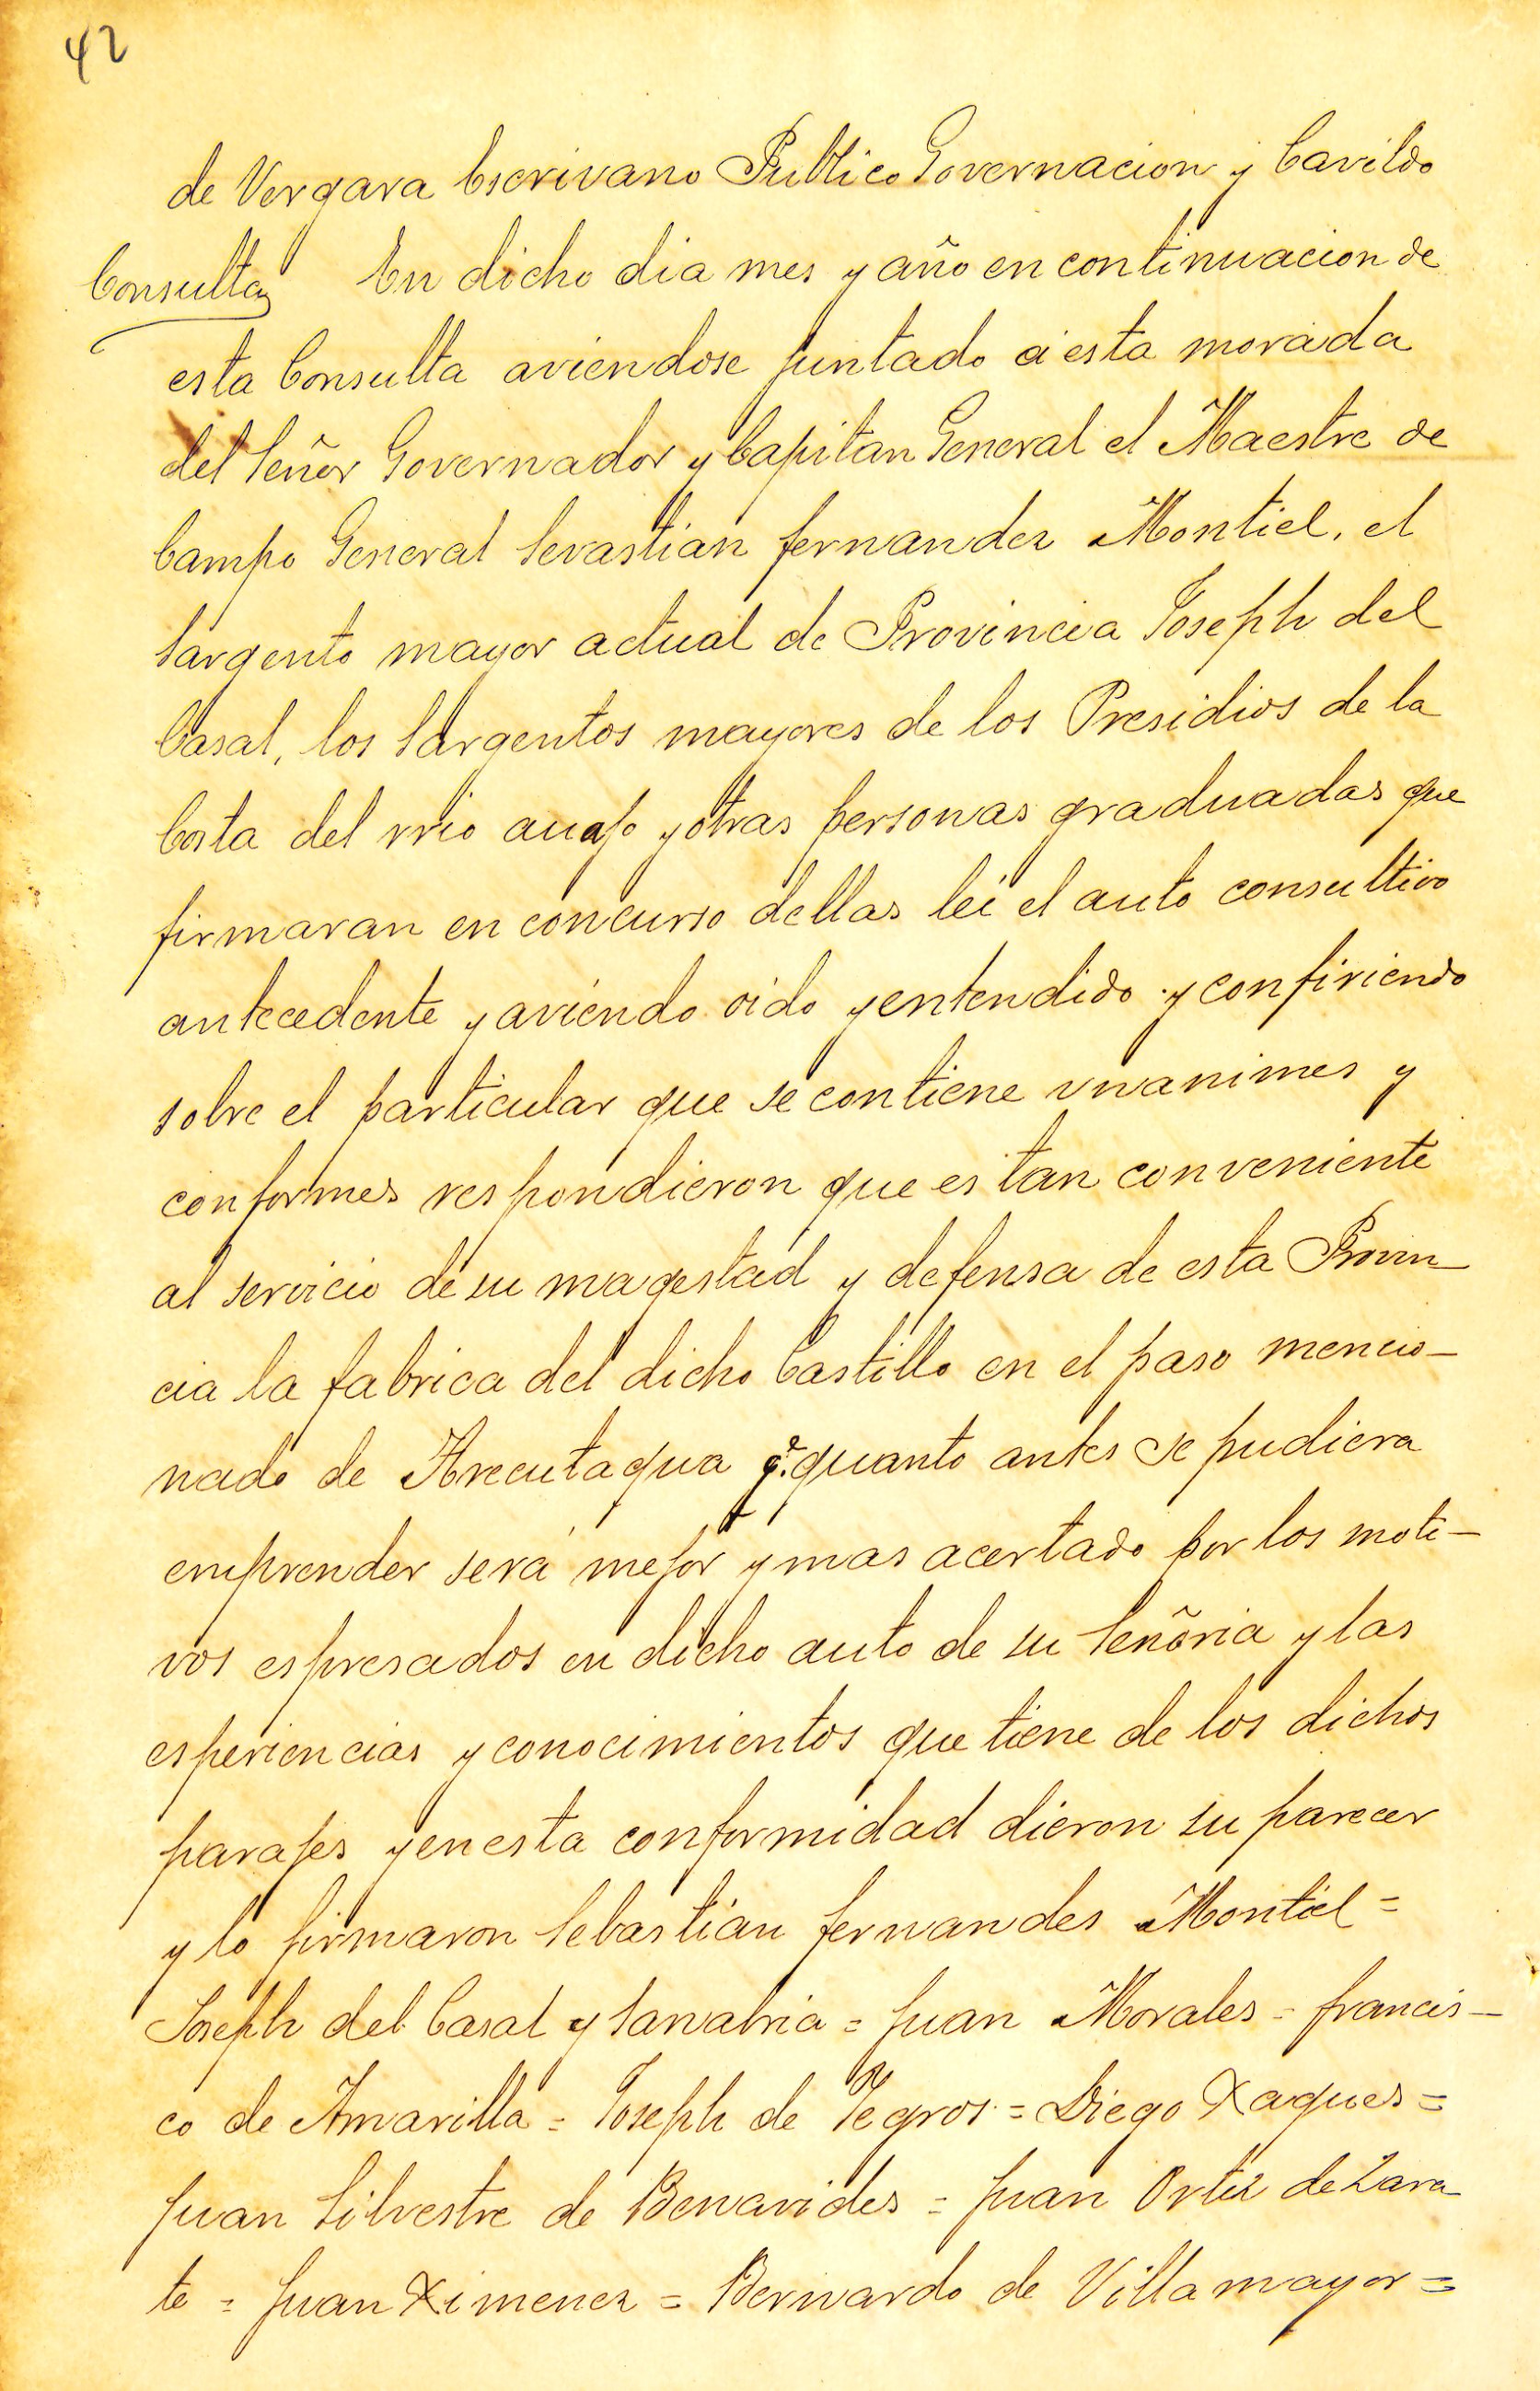 42
de Vergara Escrivano Publico Governacion y Cavildo
Consulta
En dicho dia mes y año en continuacion de
esta Consulta aviendose juntado á esta morada
del Señor Governador y Capitan General el Maestre de
Campo General Sevastian fernandez Montiel, el
Sargento mayor actual de Provincia Joseph del
Casal, los Sargentos mayores de los Presidios de la
Costa del rrio auajo y otras personas graduadas que
firmaran en concurso dellas lei el auto consultivo
antecedente y aviendo oido y entendido y confiriendo
sobre el particular que se contiene vnanimes y
conformes respondieron que es tan conveniente
al servicio de su magestad y defensa de esta Provin
cia la fabrica del dicho Castillo en el paso mencio-
nado de Arecutagua q.e quanto antes se pudiera
emprender será mejor y mas acertado por los moti-
vos espresados en dicho auto de su Señoria y las
esperiencias y conocimientos que tiene de los dichos
parajes y en esta conformidad dieron su parecer
y lo firmaron Sebastian fernandes Montiel =
Joseph del Casal y Sanabria = Juan Morales = francis-
co de Amarilla = Joseph de Yegros = Diego Xaques =
Juan Silvestre de Benavides = Juan Ortiz de Zara
te = Juan Ximenez = Bernardo de Villamayor =